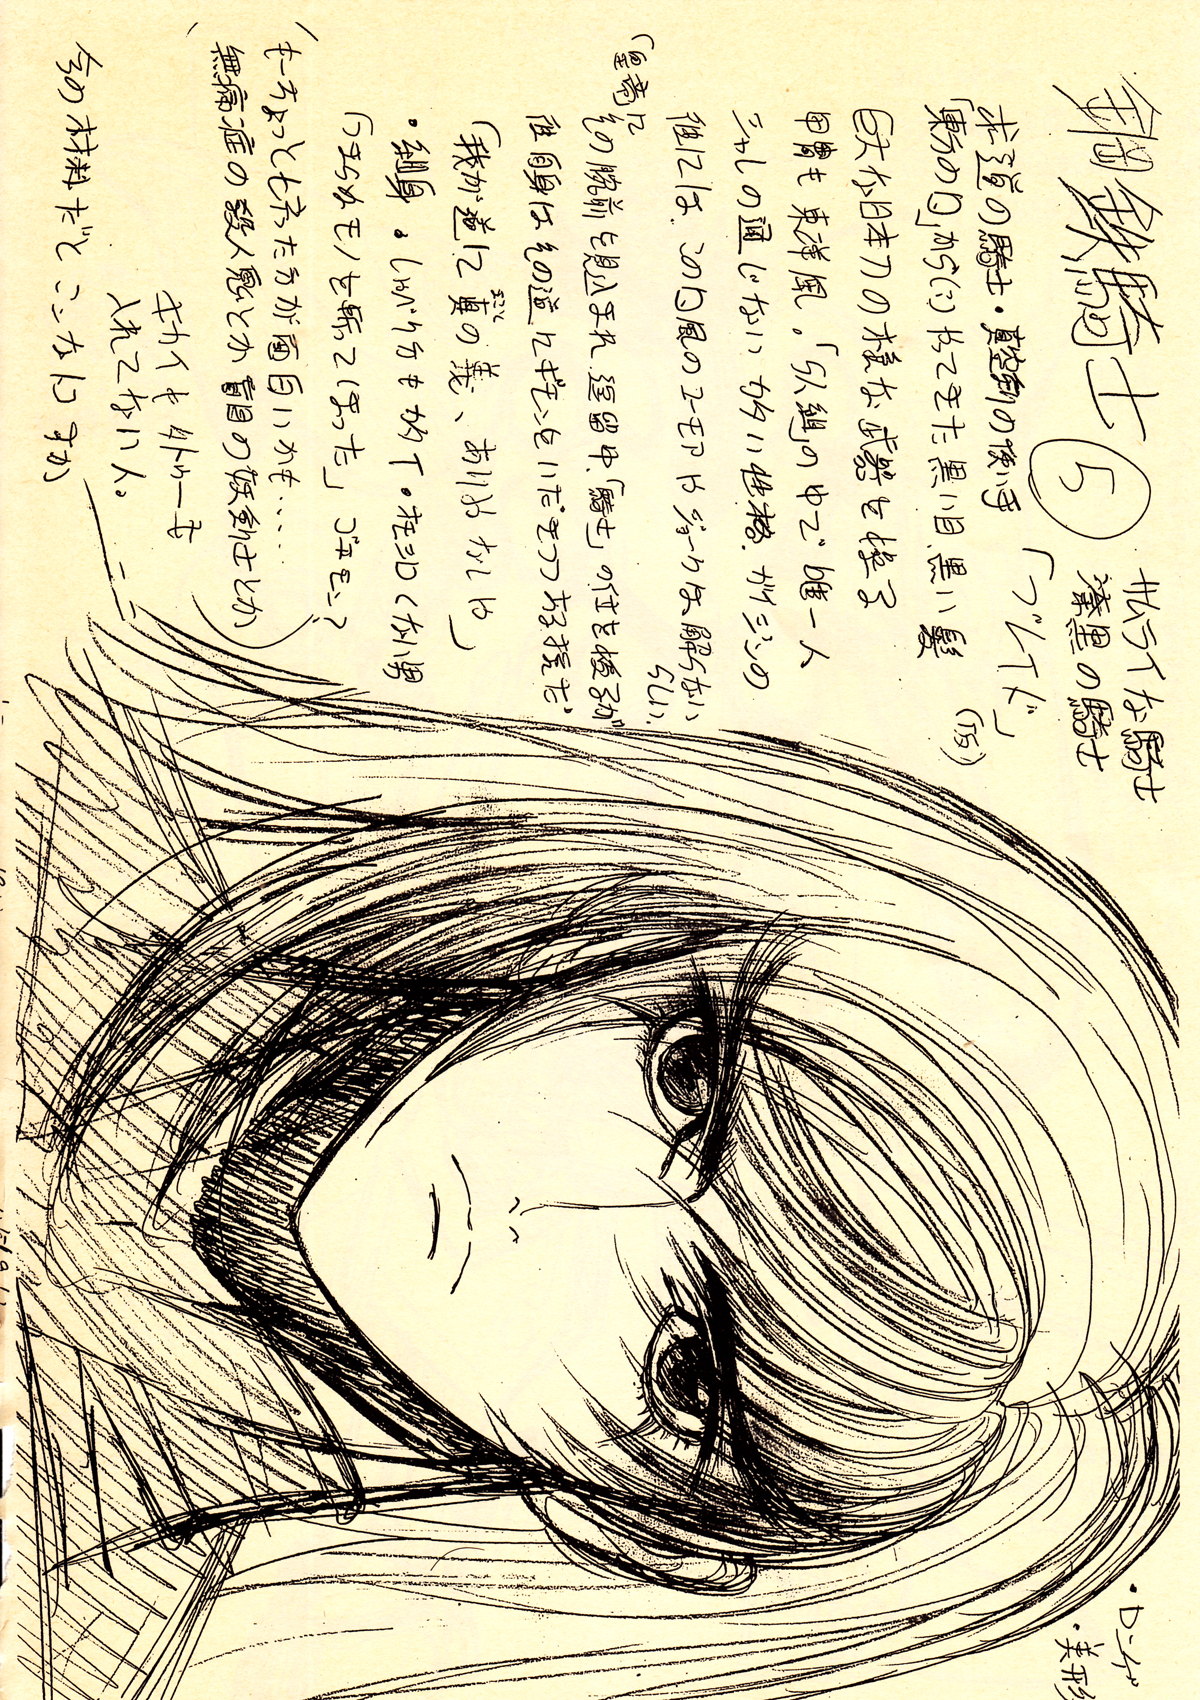 鋼鉄騎士 ⑤ サムライな騎士
漆黒の騎士
求道の騎士・真空斬の使い手 「ブレイド」
「東方の国」から(?)やってきた黒い目黒い髪
巨大な日本刀の様な武器を操る
甲冑も東洋風。「5人組」の中で唯一人
シャレの通じないカタい性格。ガイジンの
彼には、この国風のユーモアやジョークは解らない
らしい。
その腕前を見込まれ逗留中、「騎士」の任を授るが
彼自身はその道にギモンをいだきつつある様だ
(我が道に真の義、ありやなしや)
・細身。しゃべり方もカタく・オモシロくない男
「つまらぬモノを斬ってしまった」ゴエモン?
(もーちょっと七六ったカが面白いかも・・・
無痛症の殺人鬼とか盲目の妖剣士とか
キカイも外トウも
入れてない人。
今の材料だとこんなトコすか
・ロンゲ
・美形